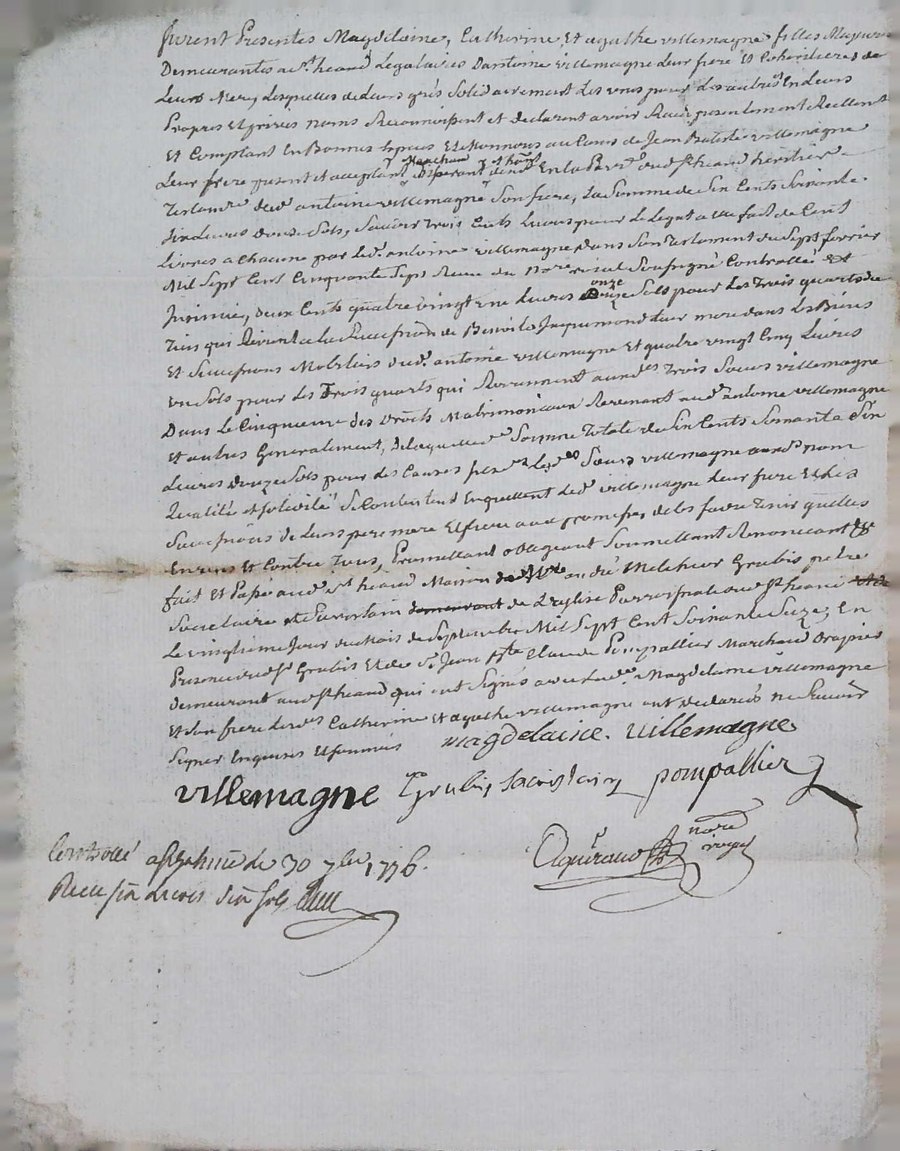 furent Presentes Magdelaine, Catherine, Et agathe villemagne filles Majeures
Demeurantes a St. heand Legataires Dantoine villemagne Leur frere Et Coheritieres de
Leurs Mere, Lesquelles de Leurs grés Solidairement Les unes pour Les autres En Leurs
Propres Et privés noms Reconnoissent et declarent avoir Reçu presentement Reellement
Et Comptant En Bonnes Especes Et de Jean Batiste villemagne
Marchand
Leur frere present et acceptant En la Par. dud. St heand heritier
Testam.re dud antoine villemagne Son frere, La Somme de Six Cents Soixante
Six Livres Douze Sols, Savoir Trois Cents Livres pour Le Legat a Eux fait de Cent
Livres a Chacune par Led. antoine villemagne dans Son Testament du Sept fevrier
Mil Sept Cent Cinquante Sept Reçu du no.re Soussigné Controllé Et
onze
Insinué, deux Cents quatre vingt une Livres Sols pour Les Trois quarts du
Tiers qui de Benoite Jaquemond Leur mere dans Les Biens
Et Successions Mobiliais dud. antoine villemagne Et quatre vingt Cinq Livres
un Sols pour Les Trois quarts qui Reviennent auxd.es Trois Sœurs villemagne
Dans Le Cinquieme des Droits Matrimoniaux Revenant aud. antoine villemagne
Et autres Generalement, De laquelle d.e Somme Totale de Six Cents Soixante Six
Livres Douze Sols pour Les Causes Les d.es Sœurs villemagne auxd. nom
Qualités et Solidité Se Contentent En quittent Led. villemagne Leur frere Et Les
Successions de Leurs pere mere Et frere aux promesses de Les faire Tenir quittes
Envers Et Contre Tous, Promettant obligeant Soumettant Renonceant
fait Et Passé aud. St heand Maison de andré Melchior Grubis petre
Secretaire et Sacristain demeurant de L'Eglise Parroissiale aud St heand
Le vingtieme Jour du Mois de Septembre Mil Sept Cent Soixante Seize, En
Presence dud Sr Grubis Et de Sr Jean Claude Pompallier Marchand Drapier
demeurant aud St heand qui ont Signés avec Lad. Magdelaine villemagne
Et Son frere Les d.es Catherine Et agathe villemagne ont Declarés ne Savoir
Signer Enquises Et Sommés
magdelaine. villemagne
villemagne Grubis, sacristain pompallier
nore
royal
Controllé a St heand Le 30 7bre 1776.
Reçu six Livres six sols